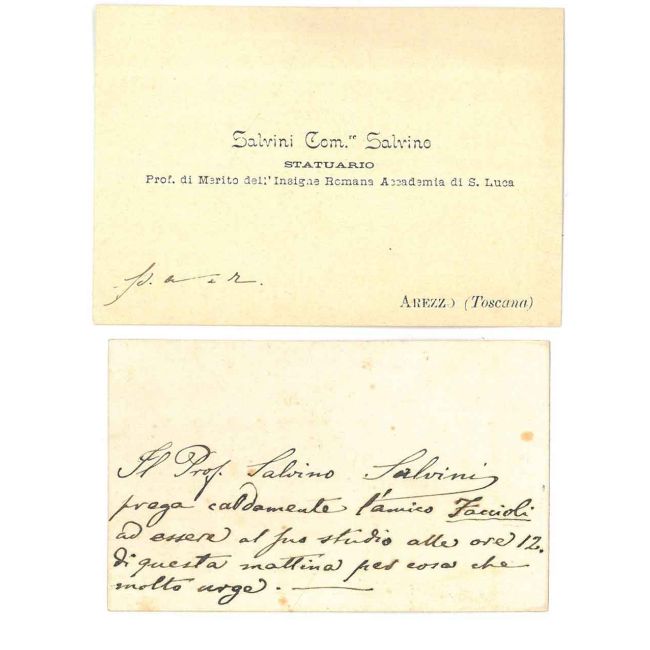 Salvini Com.re Salvino
STATUARIO
Prof. di Merito dell'Insigne Romana Accademia di S. Luca
p. a e r.
AREZZO (Toscana)
Il Prof. Salvino Salvini
prega caldamente l'amico Faccioli
ad essere al suo studio alle ore 12.
di questa mattina per cosa che
molto urge.